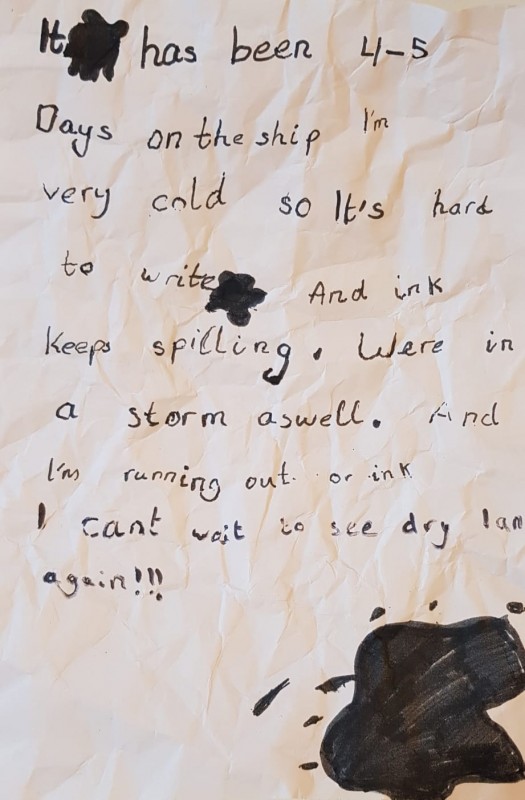 It has been 4-5
Days on the ship I'm
very cold so It's hard
to write And ink
keeps spilling. Were in
a storm aswell. And
I'm running out. or ink
I cant wait to see dry lan
again!!!